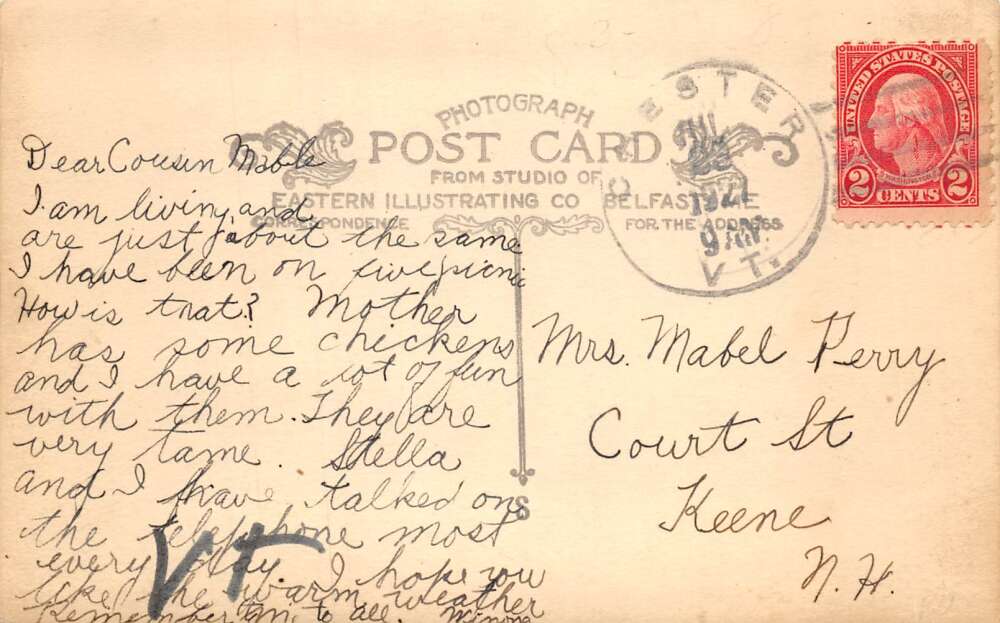 PHOTOGRAPH
POST CARD
FROM STUDIO OF
EASTERN ILLUSTRATING CO BELFAST, ME
CORRESPONDENCE FOR THE ADDRESS
Dear Cousin Mable
I am living, and
are just about the same
I have been on five picnic
How is that? Mother
has some chickens
and I have a lot of fun
with them. They are
very tame. Stella
and I have talked on
the telephone most
every day. I hope you
like the warm weather
Remember me to all. Winona
VT
S
ESTER
JUL
192
9 AM
VT.
UNITED STATES POSTAGE
WASHINGTON
2 CENTS 2
Mrs. Mabel Perry
Court St
Keene
N.H.